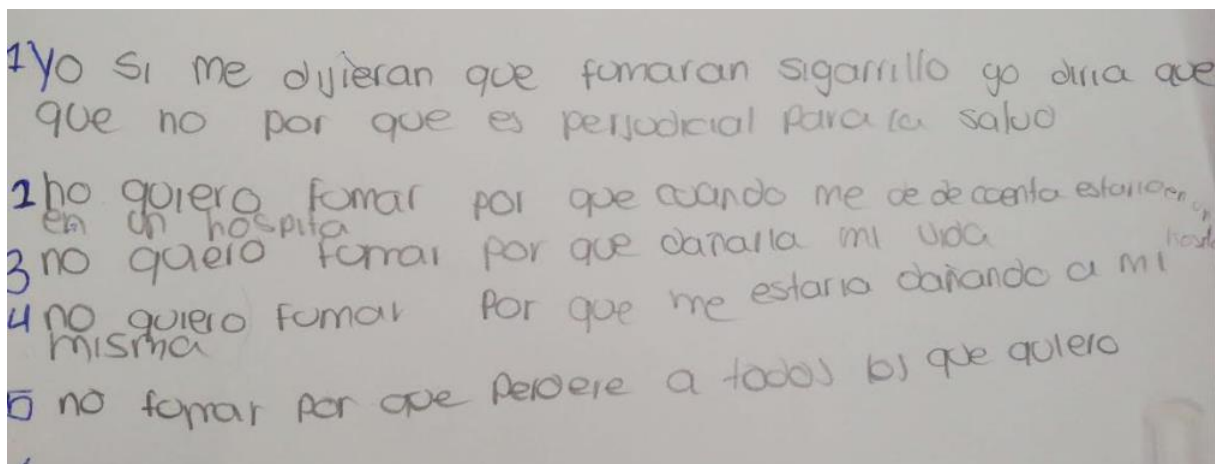 1 Yo si me dijieran que fumaran sigarrillo yo diria que
que no por que es perjudicial para la salud
2 no quiero fumar por que cuando me de de cuenta estario en un
en un hospita
3 no quero fumar por que dañalla mi vida
4 no quiero fumar Por que me estaria dañando a mi
misma
5 no fumar por que perdere a todos los que quiero